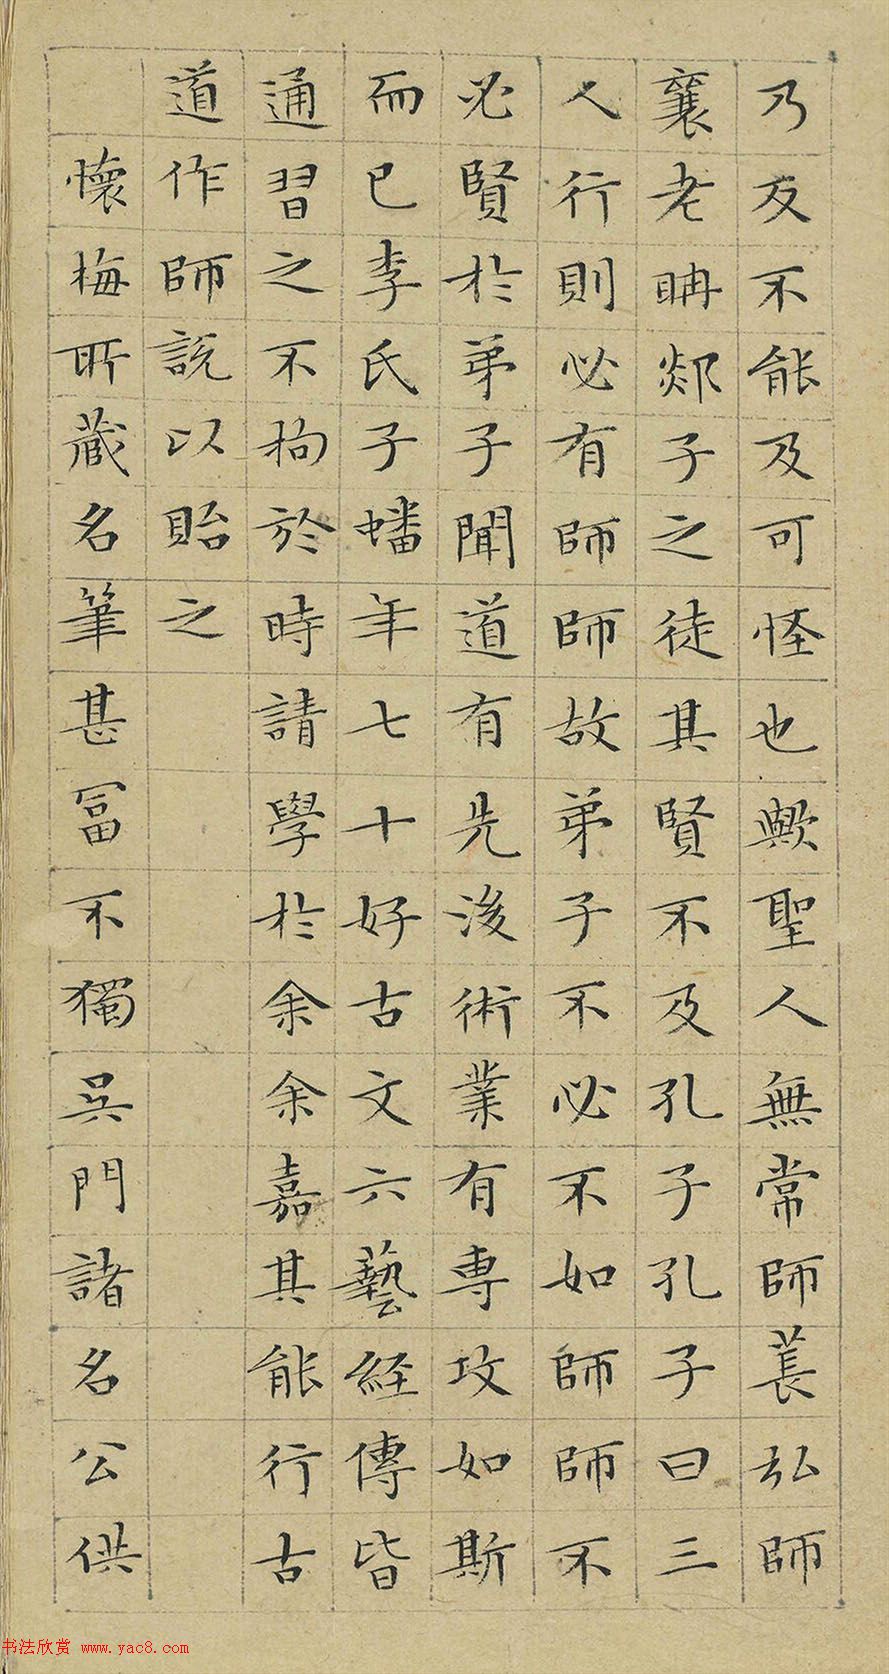 乃反不能及可怪也歟聖人無常師萇弘師
襄老聃郯子之徒其賢不及孔子孔子曰三
人行則必有師師故弟子不必不如師師不
必賢於弟子聞道有先後術業有專攻如斯
而已李氏子蟠年七十好古文六藝経傳皆
通習之不拘於時請學於余余嘉其能行古
道作師說以貽之
懷梅所藏名筆甚冨不獨吳門諸名公供
书法欣赏 www.yac8.com